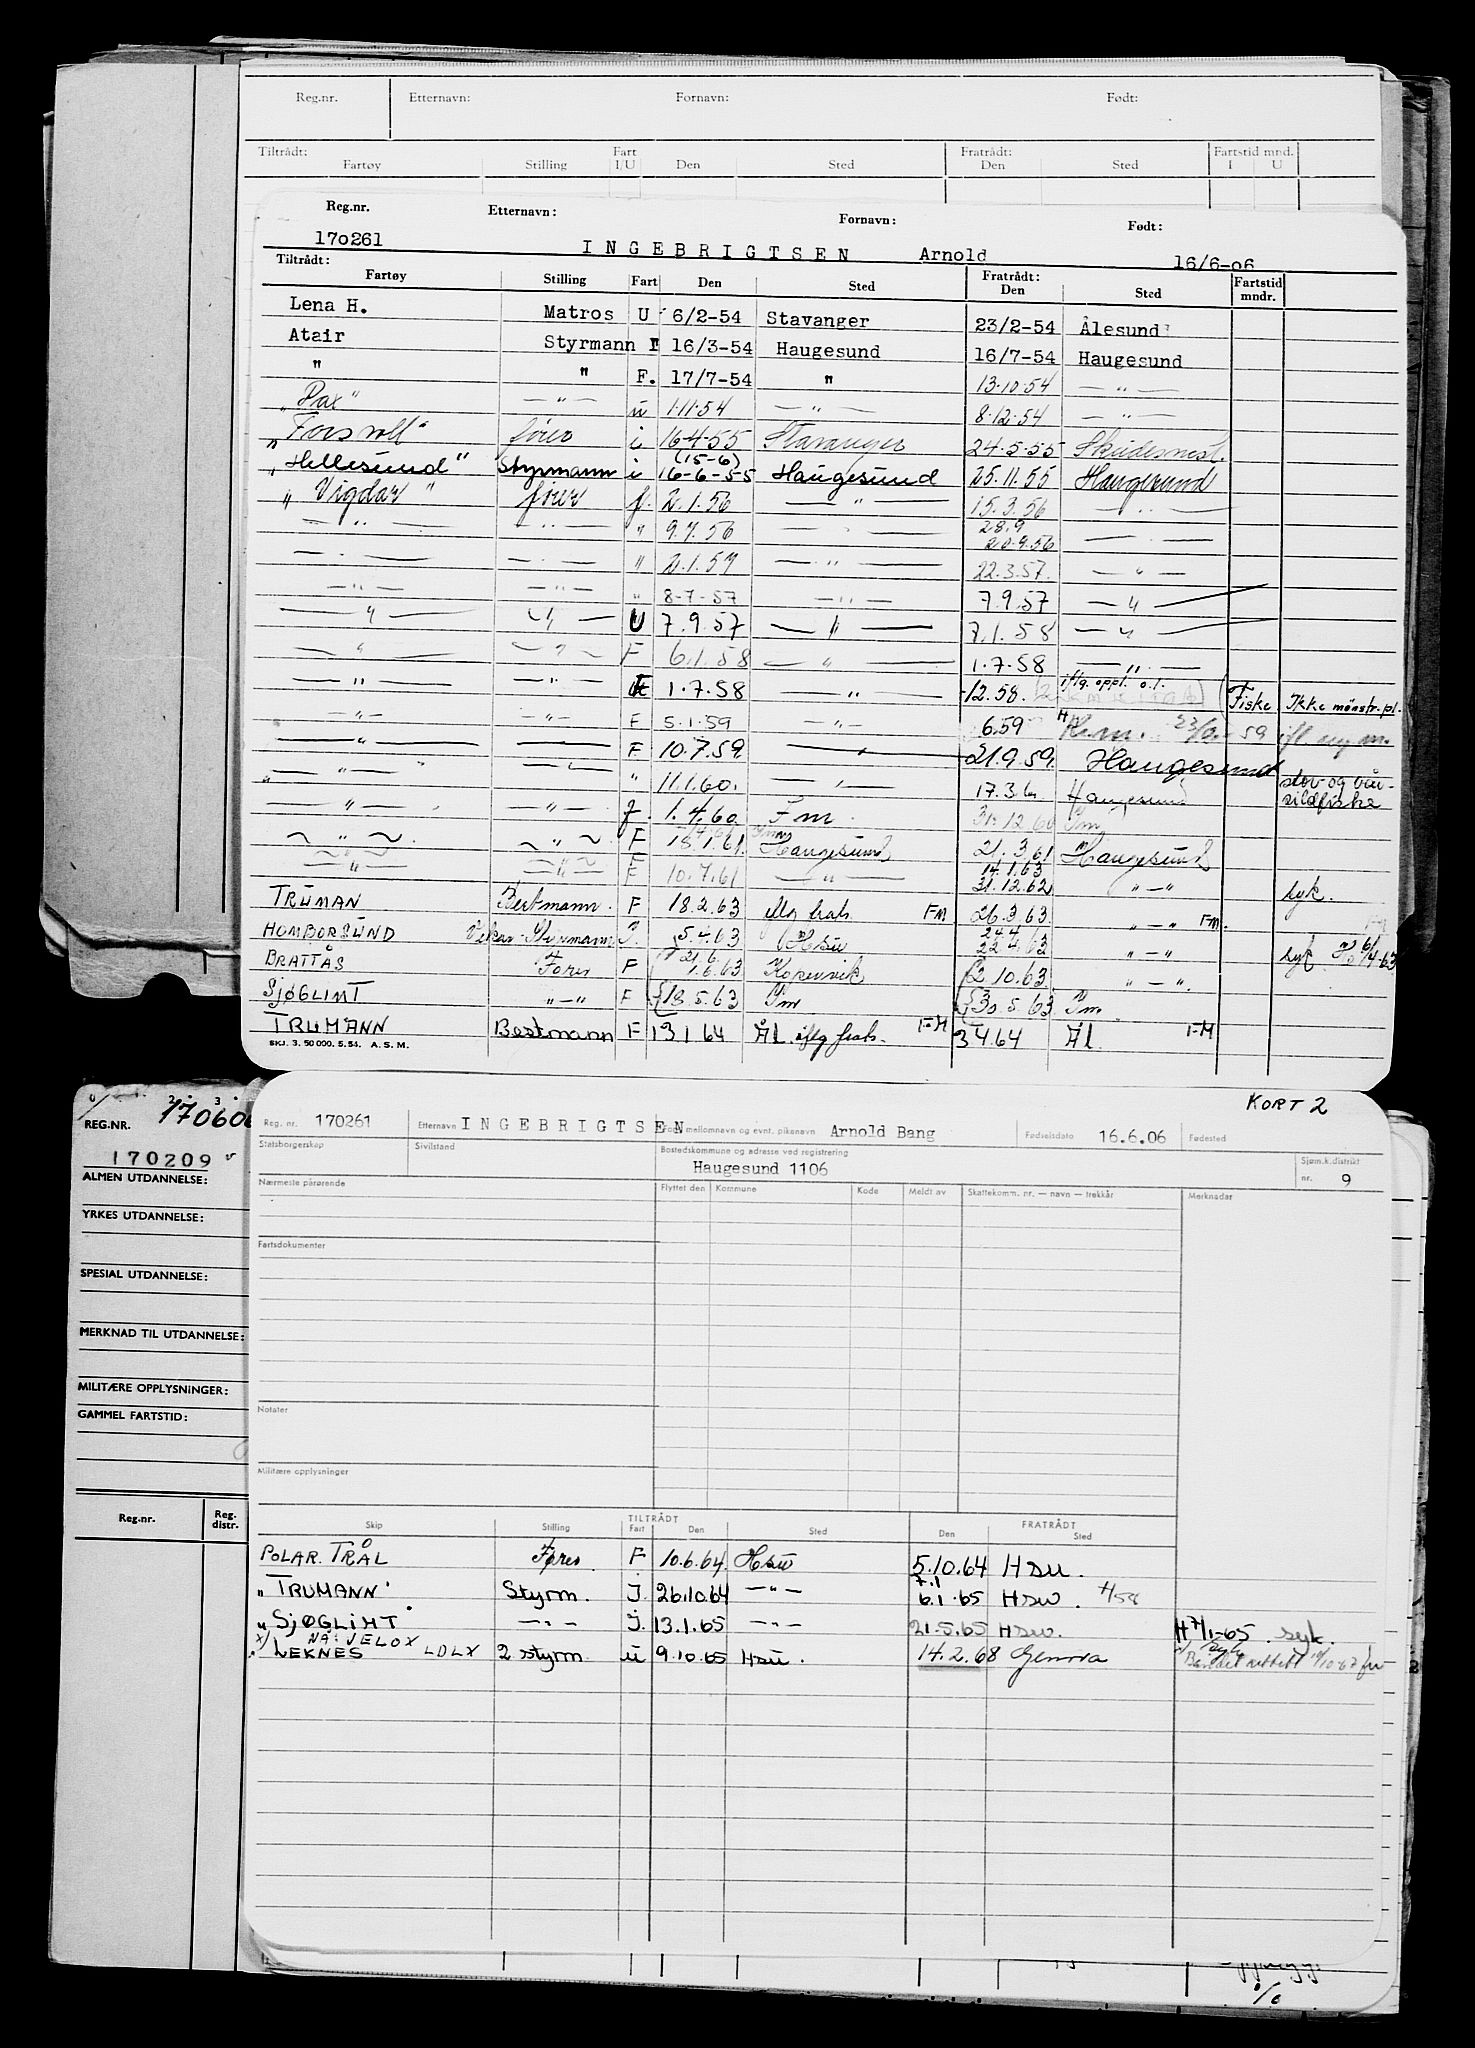 Reg.nr. Etternavn: Fornavn: Født:
Tiltrådt: Fart Fratrådt: Fartstid mnd.
Fartøy Stilling I/U Den Sted Den Sted I U
Reg.nr. Etternavn: Fornavn: Født:
170261 INGEBRIGTSEN Arnold 16/6-06
Tiltrådt: Fratrådt: Fartstid
Fartøy Stilling Fart Den Sted Den Sted mndr.
Lena H. Matros U 6/2-54 Stavanger 23/2-54 Ålesund
Atair Styrmann I 16/3-54 Haugesund 16/7-54 Haugesund
" " F. 17/7-54 " 13.10.54 — " —
"Pax" — " — u 1.11.54 — " — 8.12.54 — " —
fører i 16.4.55 Stavanger 24.5.55
(15-6)
"Hellesund" Styrmann i 16-6-55 Haugesund 25.11.55 Haugesund
"Vigdar" fører f. 2.1.56 — " — 15.3.56 — " —
28.9
— " — — " — " 9.7.56 — " — 20.9.56 — " —
— " — — " — " 2.1.57 — " — 22.3.57. — " —
— " — — " — " 8-7-57 — " — 7.9.57 — " —
— " — — " — U 7.9.57 — " — 7.1.58 — " —
— " — — " — F 6.1.58 — " — 1.7.58 — " —
iflg. oppl. o.l.
— " — — " — F 1.7.58 — " — -12.58. (Fiske Ikke mønstr.pl.
— " — — " — F 5.1.59 — " — 6.59 59
— " — — " — F 10.7.59. — " — 21.9.59. Haugesund
— " — — " — " 11.1.60. — " — 17.3.6 Haugesund stor og vår-
sildfiske
— " — — " — f. 1.4.60. Fm. 31.12.60 Fm
— " — — " — F 18.1.61. Haugesund 21.3.61 Haugesund
14.1.63
— " — — " — F 10.7.61 — " — 31.12.62 " — " syk.
TRUMAN Bestmann. F 18.2.63 iflg hats. FM 26.3.63. " — " FM.
24.4
HOMBORSUND Vikar-Styrmann I. 5.4.63 Hsu 22.4.63 " — " syk
21.6.
BRATTÅS Fører F 1.6.63 Kopervik 2.10.63. " — "
SJØGLIMT " — " F 18.5.63 Fm 30.5.63 Fm
TRUMANN Bestmann F 13.1.64 Ål. iflg hats. FM 3.4.64 Ål FM
SKJ. 3. 50 000. 5.54. A.S.M.
KORT 2
REG.NR. 17060
170209
ALMEN UTDANNELSE:
YRKES UTDANNELSE:
SPESIAL UTDANNELSE:
MERKNAD TIL UTDANNELSE:
MILITÆRE OPPLYSNINGER:
GAMMEL FARTSTID:
Reg.nr. Reg. distr.
Reg. nr. 170261 Etternavn INGEBRIGTSEN For- mellomnavn og evnt. pikenavn Arnold Bang Fødselsdato 16.6.06 Fødested
Statsborgerskap Sivilstand Bostedskommune og adresse ved registrering Sjøm.k.distrikt
Haugesund 1106 nr. 9
Nærmeste pårørende Flyttet den Kommune Kode Meldt av Skattekomm. nr. — navn — trekkår Merknader
Fartsdokumenter
Notater
Militære opplysninger
TILTRÅDT FRATRÅDT
Skip Stilling Fart Den Sted Den Sted
POLAR. TRÅL Fører. F 10.6.64. Hsu 5.10.64 HSU.
7.1
" TRUMANN" Styrm. I. 26.10.64 — " — 6.1.65 HSU. H58
" SJØGLIMT" — " — I. 13.1.65 — " — 21.5.65 HSU. H7/1-65. syk.
x) NÅ: JELOX
" LEKNES LDLX 2 styrm. u 9.10.65 HSU. 14.2.68 Genova